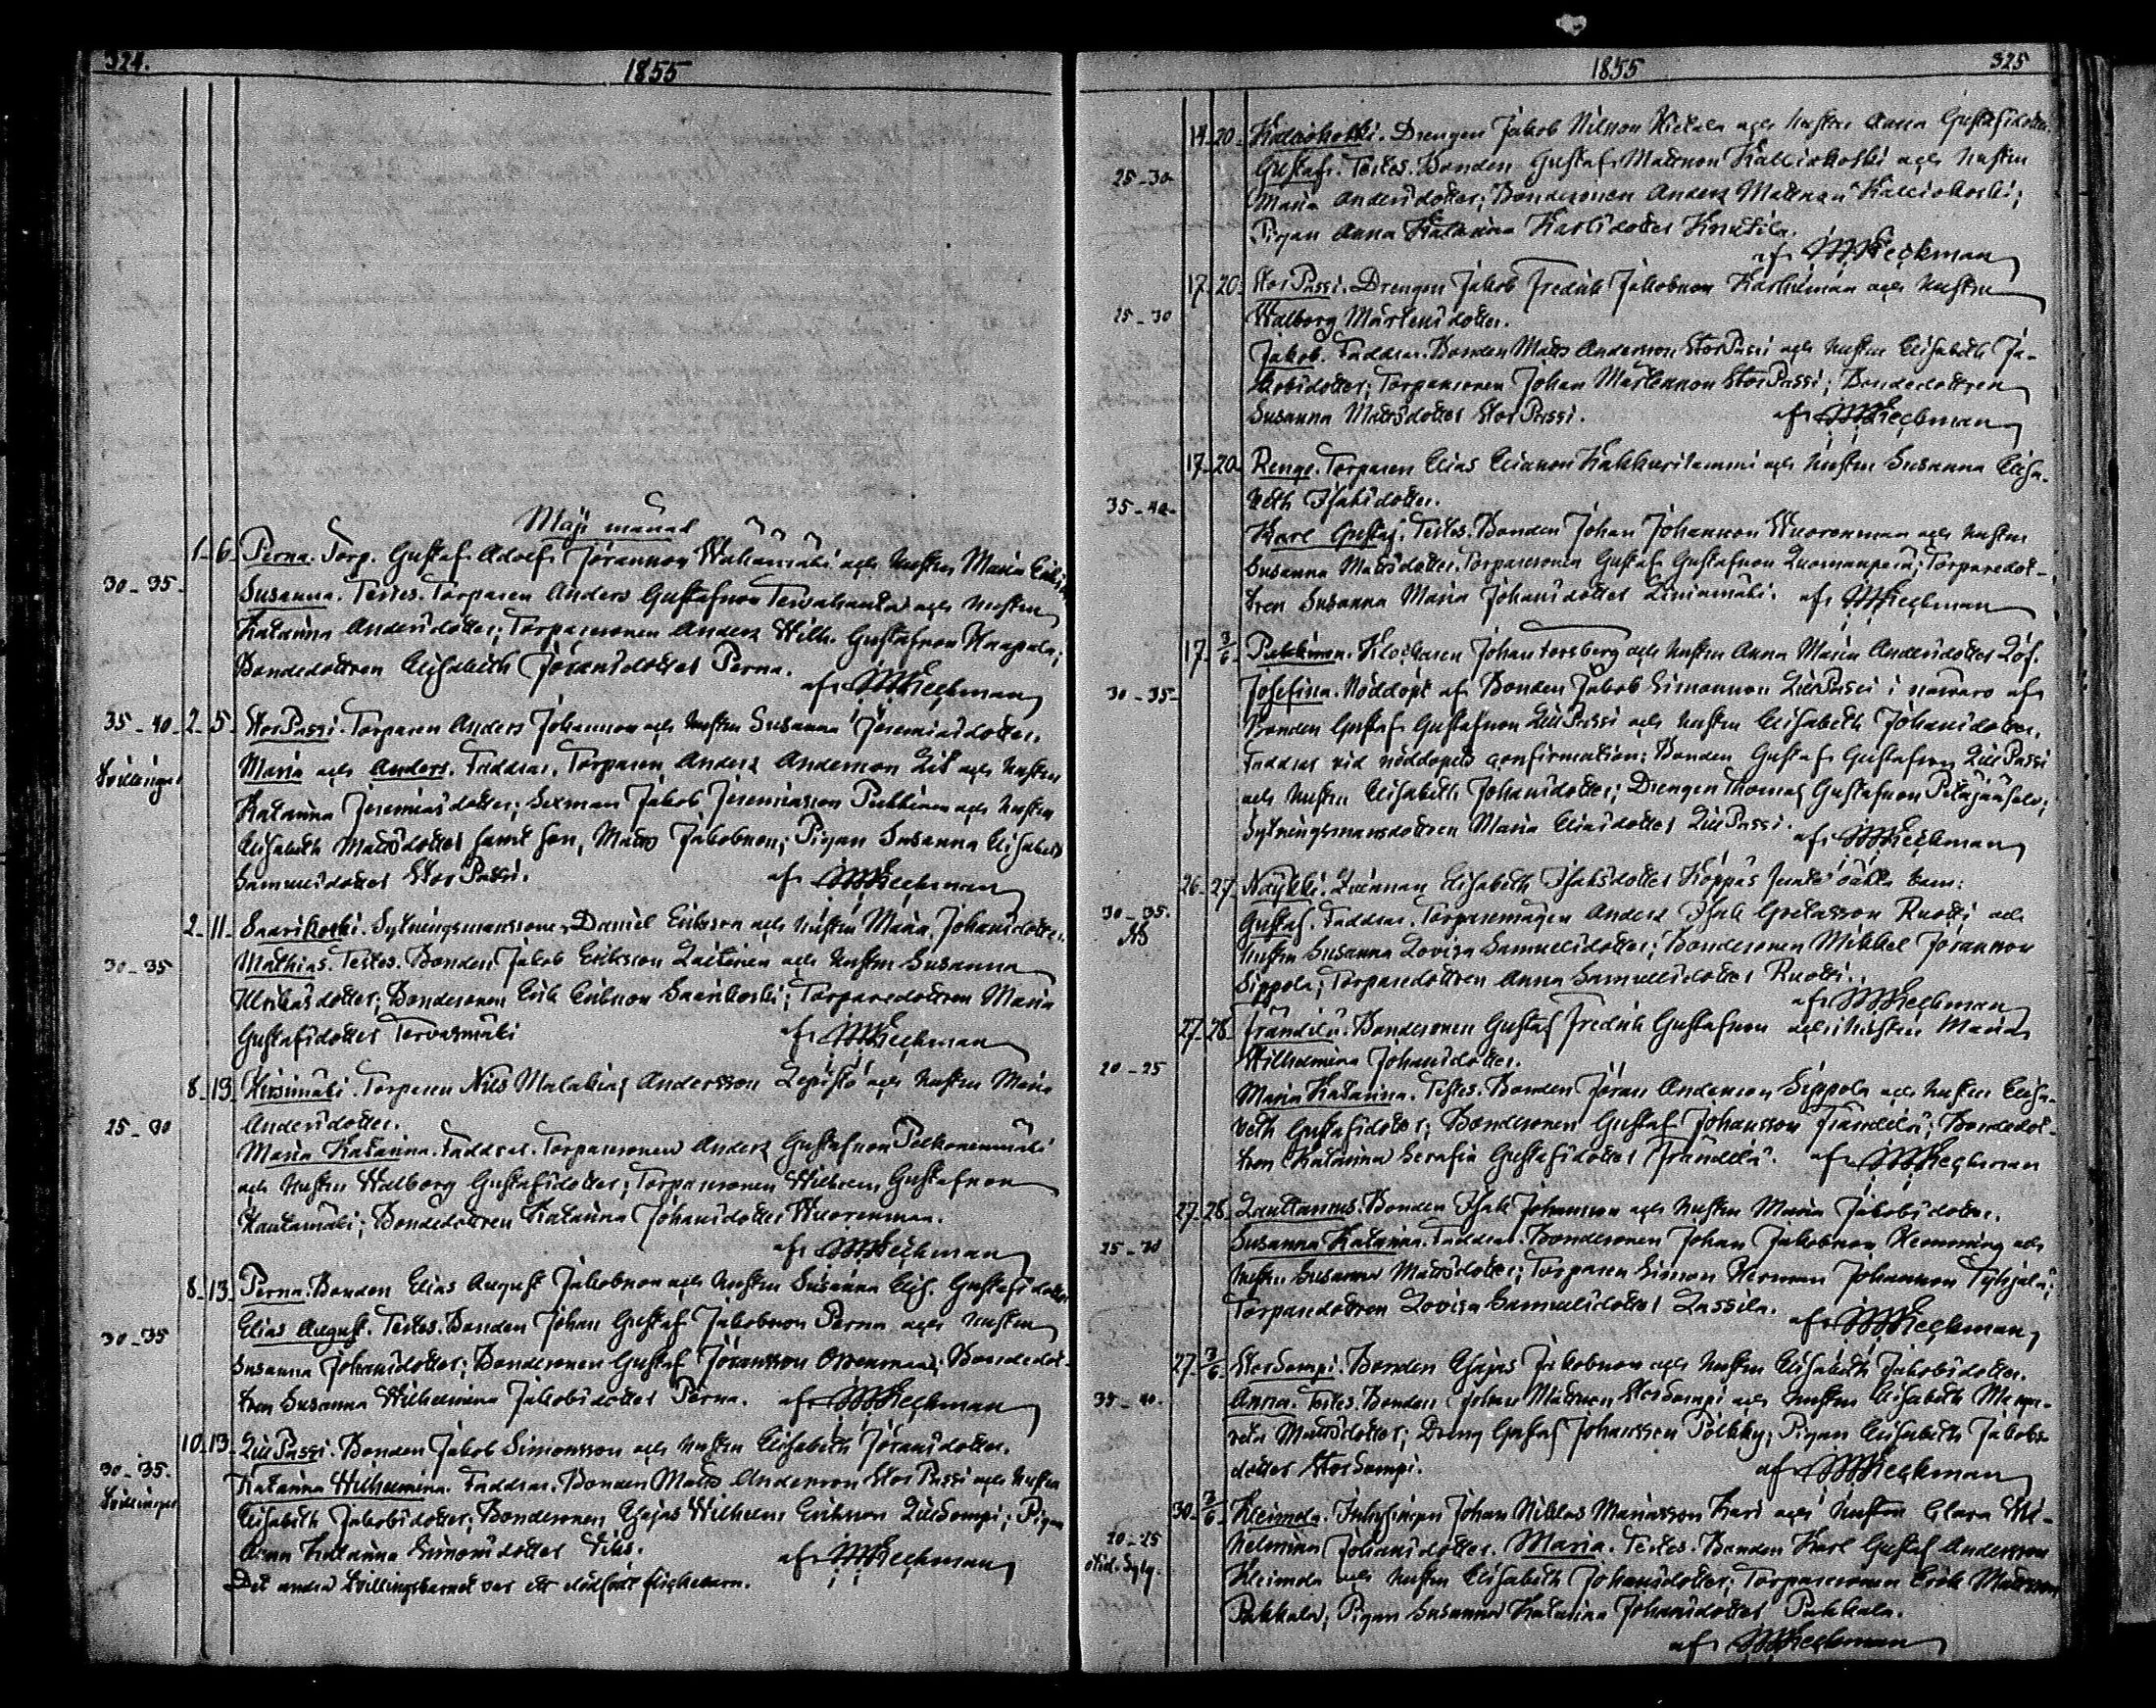 324.
1855
Maji månad
1-6- Perna. Torp. Gustaf Adolf Jöransson Wahamäki och hustru Maria
30-35- Susanna. Testes. Torparen Anders Gustafsson Tervahauta och hustru
Katarina Andersdotter; Torparesonen Anders Wilh. Gustafsson Haapala;
Bondedottren Elisabeth Jöransdotter Perna.
af Heckman
35-40- 2-5- StorPassi. Torparen Anders Johansson och hustru Susanna Jeremiasdotter.
Tvillingar Maria och Anders. Faddrar. Torparen Anders Andersson och hustru
Katarina Jeremiasdotter; Sexman Jakob Jeremiasson Pukkinen och hustru
Elisabeth Matsdotter samt son, Mats Jakobsson; Pigan Susanna Elisabeth
Samuelsdotter StorPassi.
af Heckman
2-11- Saarikoski. Sytningsmanssonen Daniel Eriksson och hustru Maria Johansdotter.
30-35 Mathias. Testes. Bonden Jakob Eriksson Laitinen och hustru Susanna
Ulrikasdotter; Bondesonen Erik Eriksson Saarikoski; Torparedottren Maria
Gustafsdotter Tervasmäki
af Heckman
8-13- Hirsimäki. Torparen Nils Malakias Andersson Lepistö och hustru Maria
Andersdotter.
25-30 Maria Katarina. Faddrar. Torparesonen Anders Gustafsson Polkonenmäki
och hustru Walborg Gustafsdotter; Torparesonen Wilhelm Gustafsson
Hautamäki; Bondedottren Katarina Johansdotter Wuorenmaa.
af Heckman
8-13- Perna. Bonden Elias August Jakobsson och hustru Susanna Elis. Gustafsdotter
30-35 Elias August. Testes. Bonden Johan Gustaf Jakobsson Perna och hustru
Susanna Johansdotter; Bondesonen Gustaf Jöransson; Bondedot-
tren Susanna Wilhelmina Jakobsdotter Perna.
af Heckman
10-13- LillPassi. Bonden Jakob Simonsson och hustru Elisabeth Jöransdotter.
30-35. Katarina Wilhelmina. Faddrar. Bonden Mats Andersson StorPassi och hustru
Tvillingar Elisabeth Jakobsdotter; Bondesonen Esajas Wilhelm Eriksson LillSompi; Pigan
Anna Katarina Simonsdotter
af Heckman
Det andra tvillingbarnet var ett dödfödt flickebarn.
1855
325
14-20- Kalliokoski. Drengen Jakob Nilsson Hietala och hustru Anna Gustafsdotter.
25-30 Gustaf. Testes. Bonden Gustaf Matsson Kalliokoski och hustru
Maria Andersdotter; Bondesonen Anders Matsson Kalliokoski;
Pigan Anna Katarina Karlsdotter Knutila.
af Heckman
17-20- StorPassi. Drengen Jakob Fredrik Jakobsson Karhumaa och hustru
25-30 Walborg Mårtensdotter.
Jakob. Faddrar. Bonden Mats Andersson StorPassi och hustru Elisabeth Ja-
kobsdotter; Torparesonen Johan Mårtensson StorPassi; Bondedottren
Susanna Matsdotter StorPassi.
af Heckman
17-20- Rengo. Torparen Elias Eliasson Kakkurilammi och hustru Susanna Elisa-
35-40- beth Isaksdotter.
Karl Gustaf. Testes. Bonden Johan Johansson Wuorenmaa och hustru
Susanna Matsdotter. Torparesonen Gustaf Gustafsson Luomanperä; Torparedot-
tren Susanna Maria Johansdotter Liniamäki.
af Heckman
17-3/6- Pukkinen. Klockaren Johan Forsberg och hustru Anna Maria Andersdotter Löf.
30-35- Josefina. Nöddöpt af Bonden Jakob Simonsson LillPassi i närvaro af
Bonden Gustaf Gustafsson LillPassi och hustru Elisabeth Johansdotter.
Faddrar vid nöddopets confirmation: Bonden Gustaf Gustafsson LillPassi
och hustru Elisabeth Johansdotter; Drengen Thomas Gustafsson Pitäjänsalo;
Sytningsmansdottren Maria Eliasdotter LillPassi.
af Heckman
26-27- Näykki. Qvinnan Elisabeth Isaksdotter Koppas oäkta barn:
30-35. Gustaf. Faddrar. Torparemågen Anders Isak Gretasson Ruotti och
hustru Susanna Lovisa Samuelsdotter; Bondesonen Mikkel Jöransson
Sippola; Torparedottren Anna Samuelsdotter Ruotti.
af Heckman
27-28- Frändilä. Bondesonen Gustaf Fredrik Gustafsson och hustru Maria
20-25 Wilhelmina Johansdotter.
Maria Katarina. Testes. Bonden Jöran Andersson Sippola och hustru Elisa-
beth Gustafsdotter; Bondesonen Gustaf Johansson Frändilä; Bondedot-
tren Katarina Serafia Gustafsdotter Frändilä.
af Heckman
27-28- Lauttamus. Bonden Isak Johansson och hustru Maria Jakobsdotter.
25-30 Susanna Katarina. Faddrar. Bondesonen Johan Jakobsson Hemming och
hustru Susanna Matsdotter; Torparen Simon Herman Johansson Tyhjälä;
Torparedottren Lovisa Samuelsdotter Lassila.
af Heckman
27-3/6- StorSompi. Bonden Esajas Jakobsson och hustru Elisabeth Jakobsdotter.
35-40. Anna. Testes. Bonden Johan Matsson StorSompi och hustru Elisabeth Marga-
reta Matsdotter; Dreng Gustaf Johansson Pölkky; Pigan Elisabeth Jakobs-
dotter StorSompi.
af Heckman
30-3/6- Kleimola. Inhysingen Johan Niklas Mariasson Kari och hustru Clara Wil-
20-25 helmina Johansdotter. Maria. Testes. Bonden Karl Gustaf Andersson
Kleimola och hustru Elisabeth Johansdotter; Torparesonen Erik Matsson
Pukkala; Pigan Susanna Katarina Johansdotter Pukkala.
af Heckman